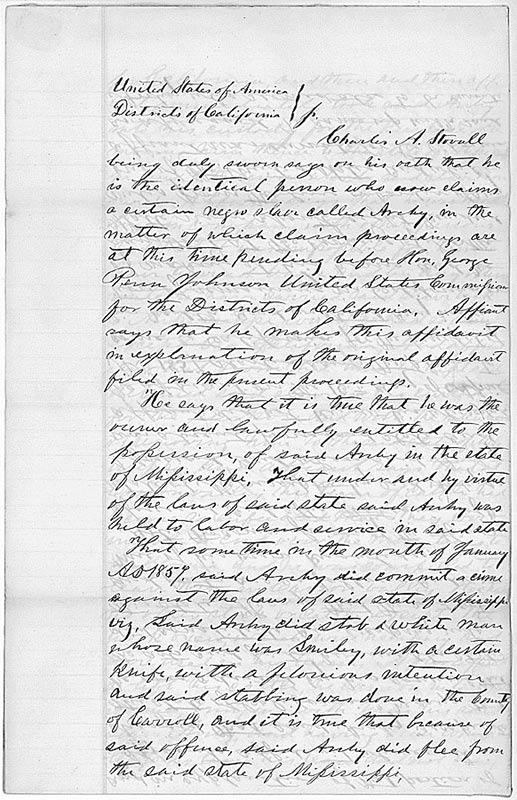 United States of America
Districts of California } ss.
Charles A. Stovall
being duly sworn says on his oath that he
is the identical person who now claims
a certain negro slave called Archy, in the
matter of which claim proceedings are
at this time pending before Hon. George
Penn Johnson United States Commission
for the Districts of California. Affiant
says that he makes this affidavit
in explanation of the original affidavit
filed in the present proceedings.
He says that it is true that he was the
owner and lawfully entitled to the
possession, of said Archy in the state
of Mississippi, That under and by virtue
of the laws of said state said Archy was
held to labor and service in said state
That some time in the month of January
AD 1857, said Archy did commit a crime
against the laws of said state of Mississippi
viz, Said Archy did stab a white man
whose name was Smiley, with a certain
knife, with a felonious intention
and said stabbing was done in the County
of Carroll, and it is true that because of
said offence, said Archy did flee from
the said state of Mississippi,